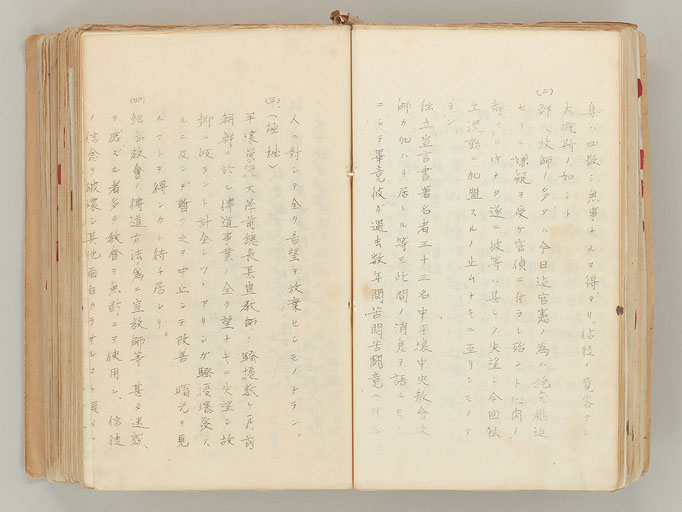 集ハ四散シ無事ナルヲ得タリ信徒ノ
大概斯ノ如シト
(二)
鮮人牧師ノ多クハ今日迄官憲ノ為ニ
セラレ嫌疑ヲ受ケ密偵ニ付ラレ殆ント
遂ニ彼等ハ甚シク失望シ今回独
立運動ニ加盟スルノ止ムナキニ至リシモノナ
ラン
独立宣言書署名者三十三名中平壌中央教會
師カ加ハリ居レル等モ此間ノ消息ヲ語レル
ニシテ畢竟彼カ過去数年間苦悶苦闘
人ニ對シテ全ク希望ヲ放棄セシモノナラン。
(三)(極秘)
平壌崇實大學前總長某宣教師ハ騒擾数ヶ月前
朝鮮ニ於ル傳道事業ノ全ク望ナキニ失望シ故
郷ニ皈ラント計企シツヽアリシガ騒擾爆発ス
ルニ及ンデ暫ク之ヲ中止シテ改善ノ曙光ヲ見
ルコトヲ得ンカト待チ居レリ。
(四)組合教會ノ傳道方法為ニ宣教師等ノ甚タ迷惑
ヲ感ズル者多ク教會ヲ無断ニテ使用シ、信徒
ノ信念ヲ破壊シ其他面白カラサルコト